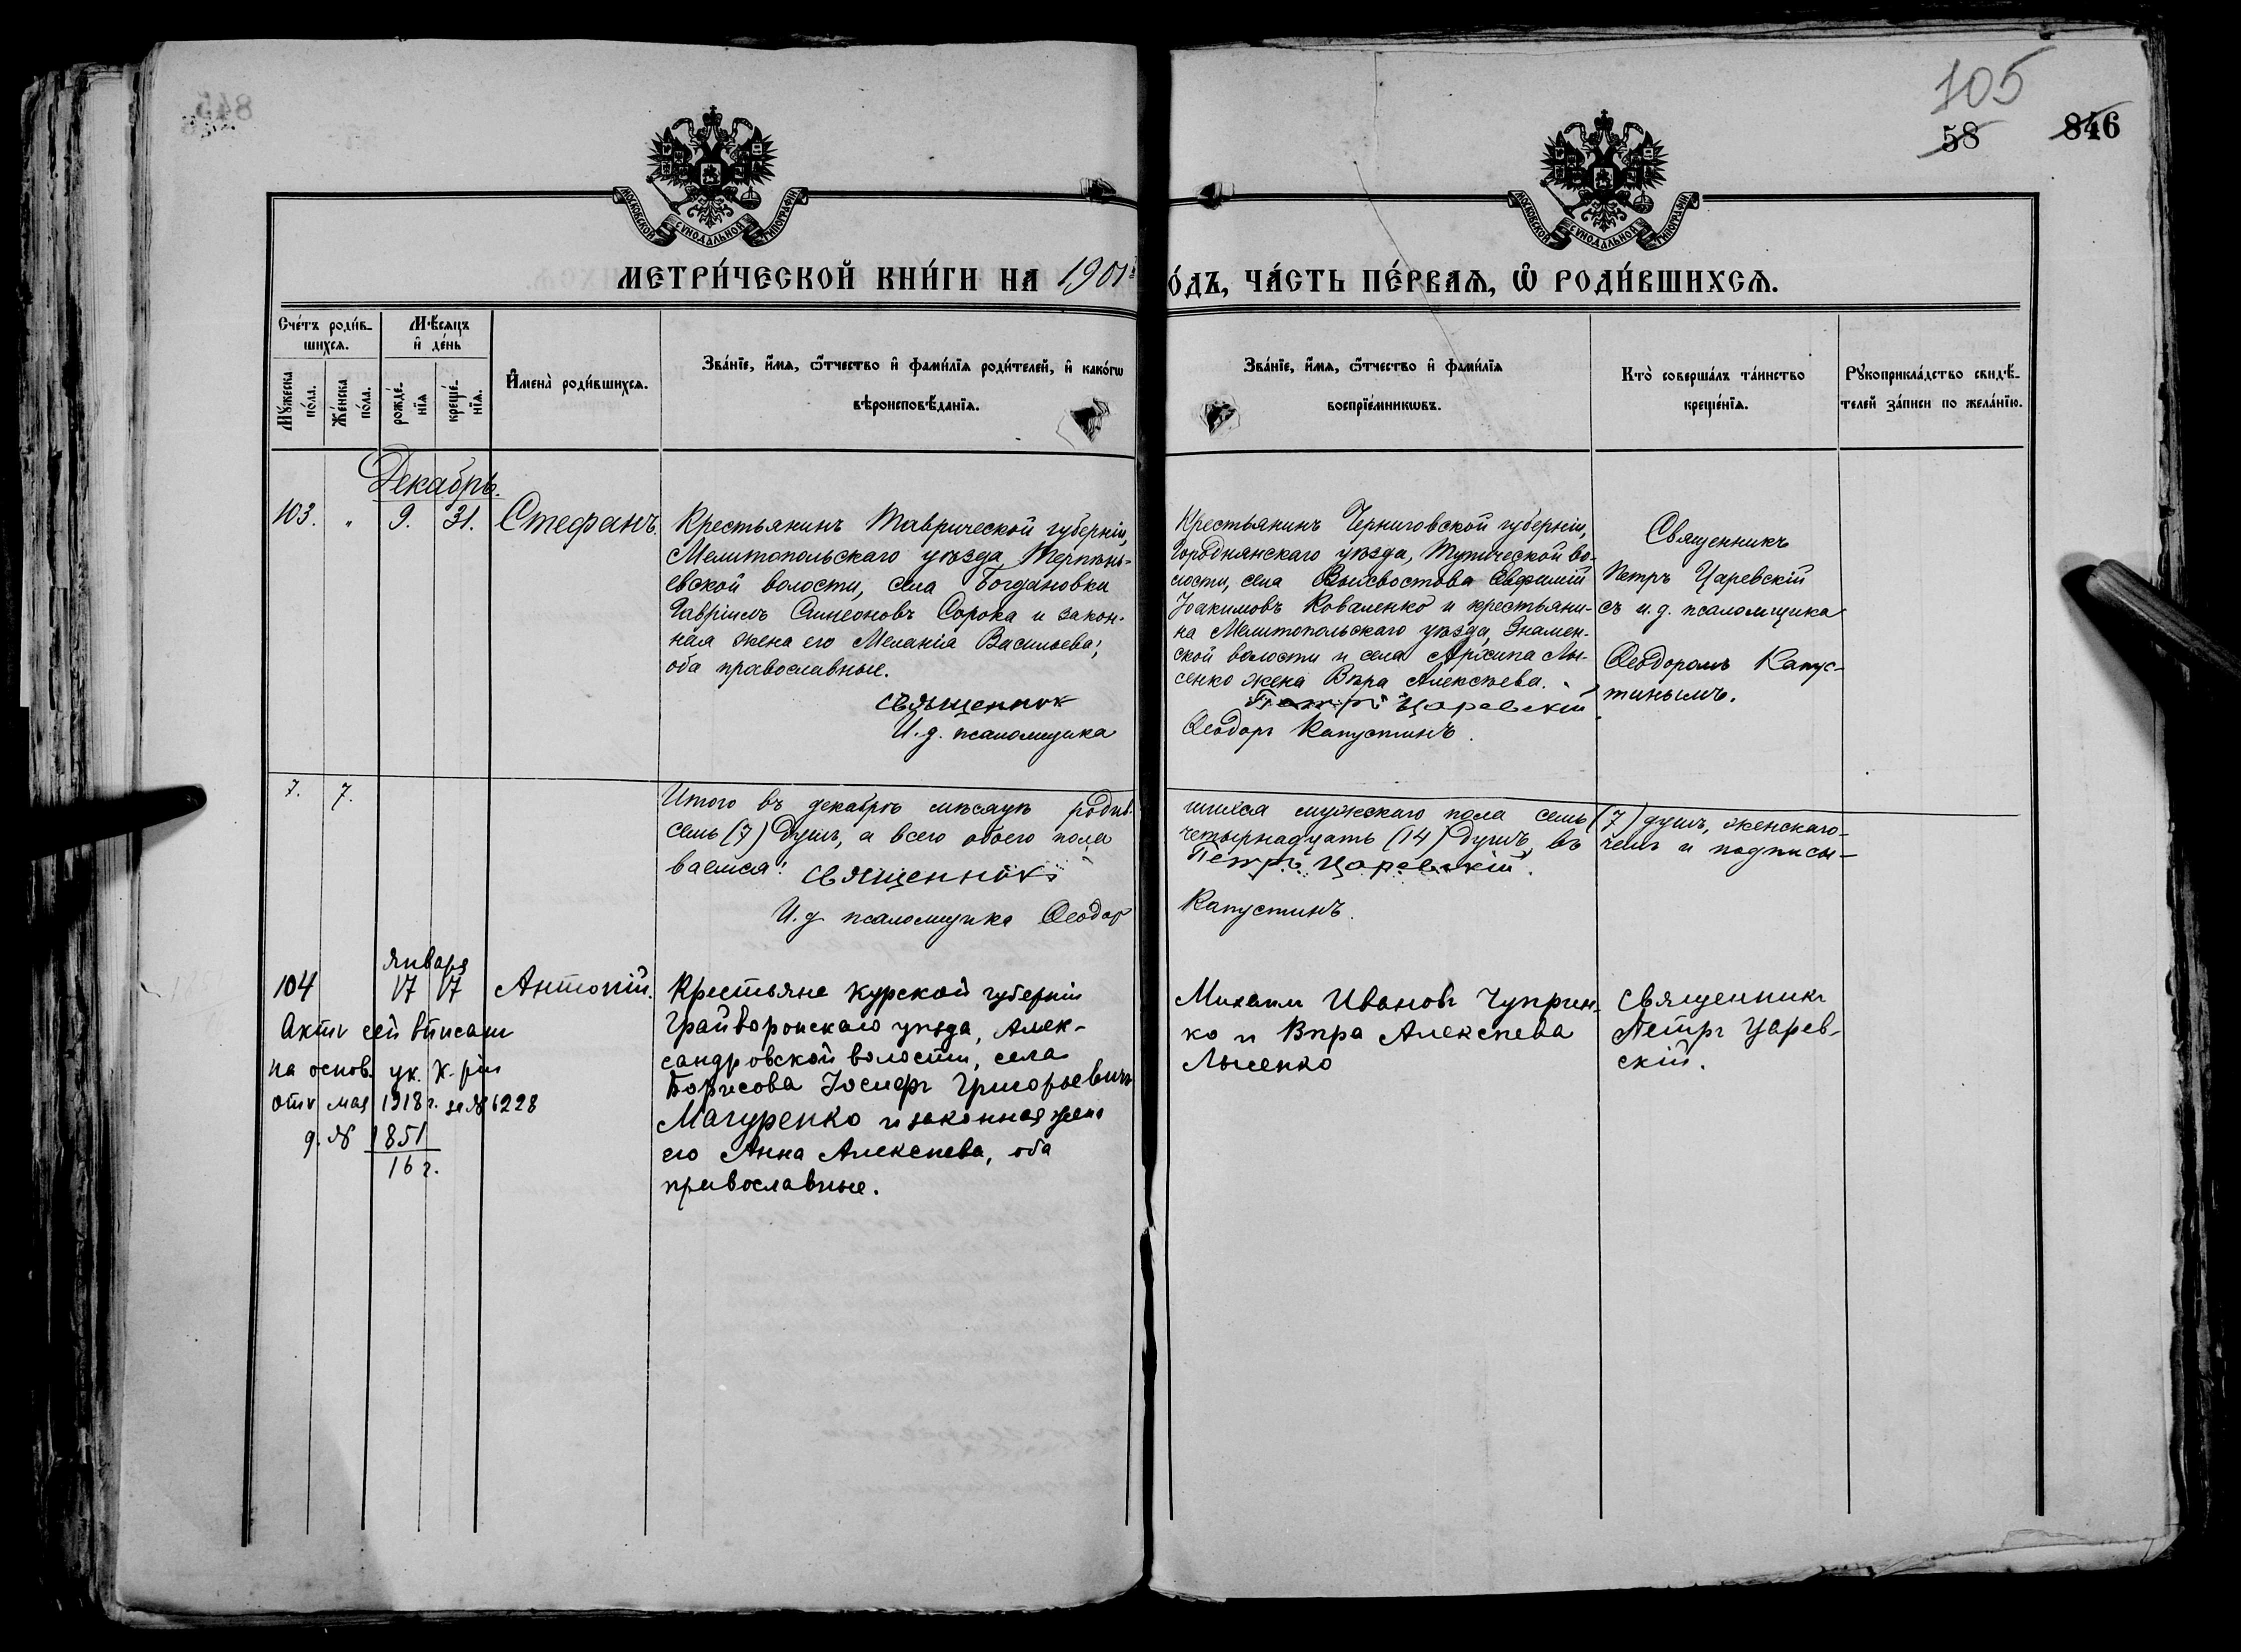 105
58
846
МОСКОВСКОЙ СѴНОДАЛЬНОЙ ТИПОГРАФІИ
МОСКОВСКОЙ СѴНОДАЛЬНОЙ ТИПОГРАФІИ
МЕТРИ́ЧЕСКОЙ КНИ́ГИ НА 1901 г
О́ДЪ, ЧА́СТЬ ПЕ́РВАѦ, Ѡ҆ РОДИ́ВШИХСѦ.
Сче́тъ роди́в-
шихсѧ.
Мꙋ́жеска по́ла.
Же́нска по́ла.
Мѣ́сѧцъ
и҆ де́нь
рожде́-
нїѧ
креще́-
нїѧ.
И҆мена̀ роди́вшихсѧ.
Зва́нїе, и҆́мѧ, ѻ҆́тчество и҆ фами́лїѧ роди́телей, и҆ како́гѡ
вѣроисповѣ́данїѧ.
Зва́нїе, и҆́мѧ, ѻ҆́тчество и҆ фами́лїѧ
воспрїе́мникѡвъ.
Кто̀ соверша́лъ та́инство
креще́нїѧ.
Рꙋкоприкла́дство свидѣ́-
телей за́писи по жела́нїю.
Декабрь.
103. " 9. 31. Стефанъ.
Крестьянинъ Таврической губерніи,
Мелитопольскаго уѣзда, Терпѣнь-
евской волости, села Богдановки
Гавріилъ Симеоновъ Сорока и закон-
ная жена его Меланія Васильева;
оба православные.
Священник
И. д. псаломщика
Крестьянинъ Черниговской губерніи,
Городнянскаго уѣзда, Тупической во-
лости, села Выхвостова Евфимій
Іоакимовъ Коваленко и крестьяни-
на Мелитопольскаго уѣзда, Знамен-
ской волости и села Архипа Лы-
сенко жена Вѣра Алексѣева.
Петръ Царевскій
Ѳеодоръ Капустинъ.
Священникъ
Петръ Царевскій
съ и. д. псаломщика
Ѳеодоромъ Капус-
тинымъ.
7. 7.
Итого въ декабрѣ мѣсяцѣ родив-
семь (7) душъ, а всего обоего пола
ваемся: Священникъ
И. д. псаломщика Ѳеодор
шихся мужскаго пола семь (7) душъ, женскаго-
четырнадцать (14) душъ, въ чемъ и подписы-
Петръ Царевскій.
Капустинъ.
Января
104 17 17 Антоній.
Актъ сей вписанъ
на основ. ук. К-ріи
отъ мая 1918 г. за № 6228
д. № 1851
16 г.
Крестьяне Курской губерніи
Грайворонскаго уѣзда, Алек-
сандровской волости, села
Борисова Іосифъ Григорьевичъ
Мачуренко и законная жена
его Анна Алексѣева, оба
православные.
Михаилъ Ивановъ Чуприн-
ко и Вѣра Алексѣева
Лысенко
Священникъ
Петръ Царев-
скій.